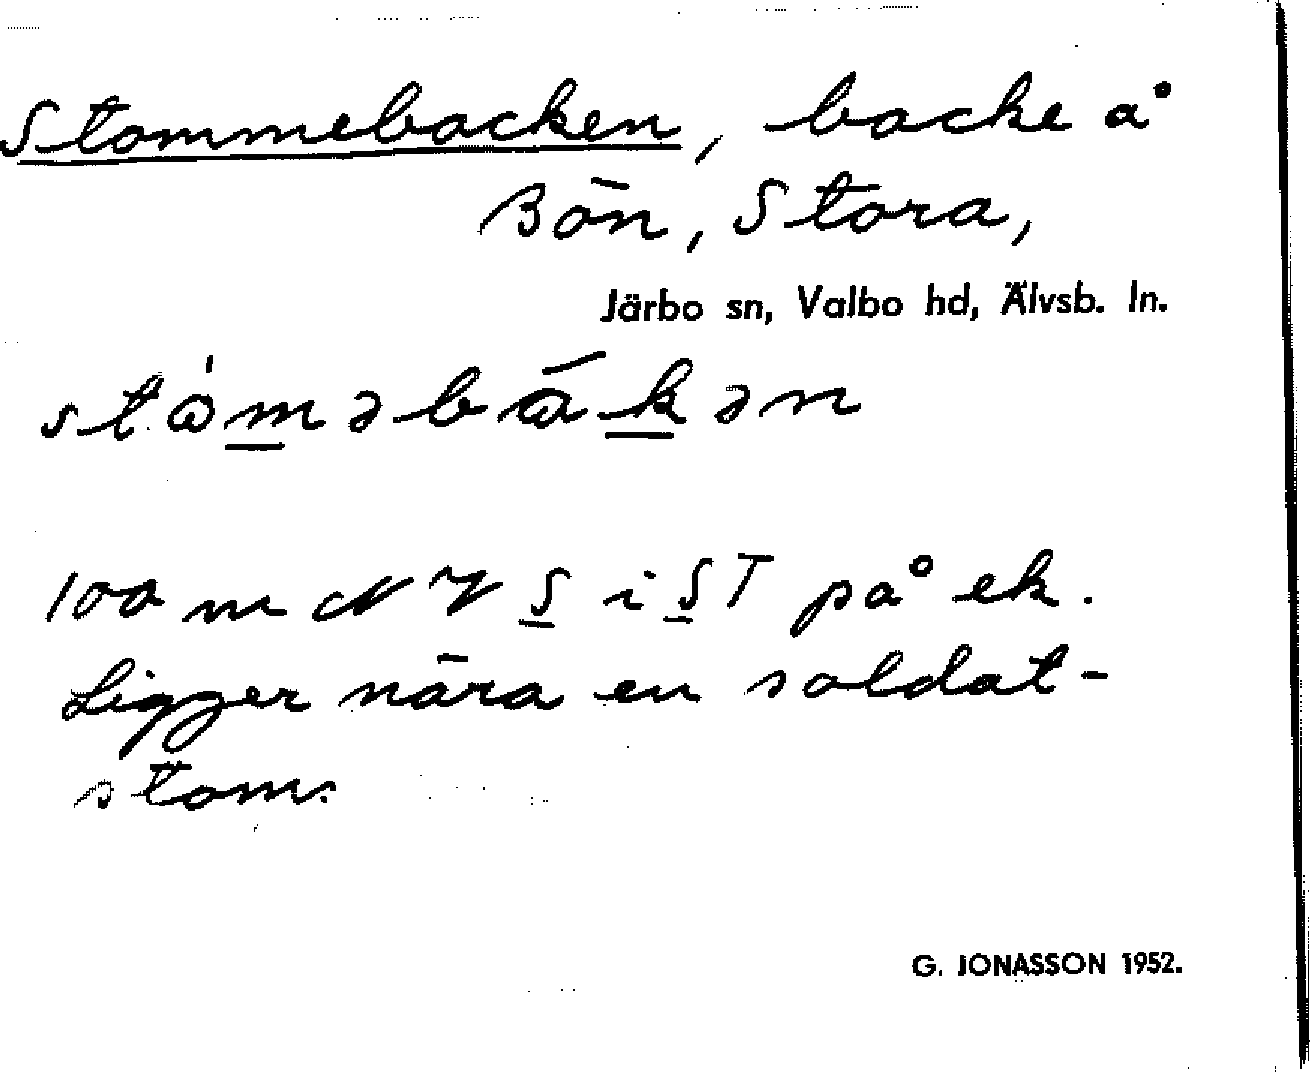 Stommebacken, backe å
Bön, Stora,
Järbo sn, Valbo hd, Älvsb. ln.
100 m NV S i ST på ek.
Ligger nära en soldat-
stom.
G. JONASSON 1952.